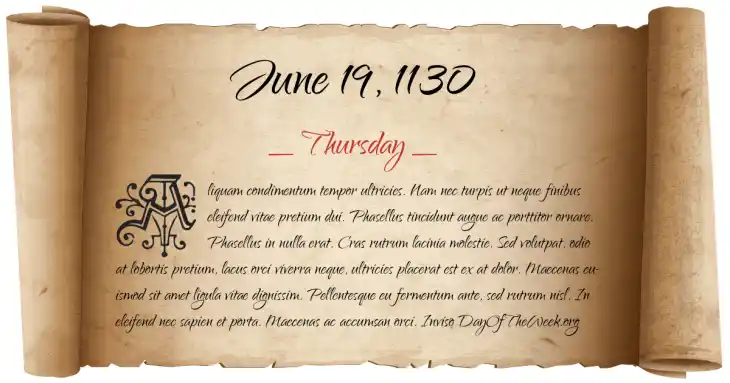 June 19, 1130
— Thursday —
Aliquam condimentum tempor ultricies. Nam nec turpis ut neque finibus
eleifend vitae pretium dui. Phasellus tincidunt augue ac porttitor ornare.
Phasellus in nulla erat. Cras rutrum lacinia molestie. Sed volutpat, odio
at lobortis pretium, lacus orci viverra neque, ultricies placerat est ex at dolor. Maecenas eu-
ismod sit amet ligula vitae dignissim. Pellentesque eu fermentum ante, sed rutrum nisl. In
eleifend nec sapien et porta. Maecenas ac accumsan orci. Inviso DayOfTheWeek.org